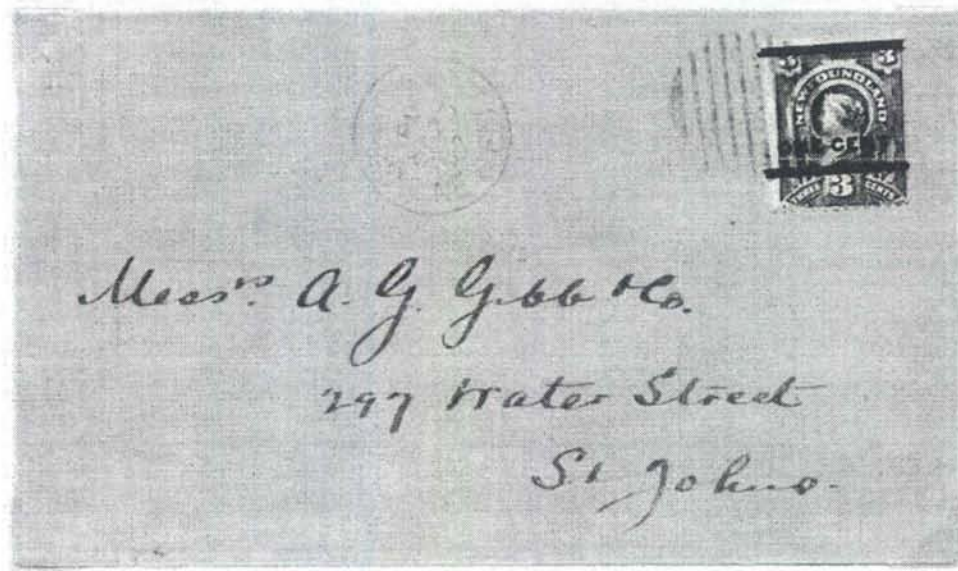 3 3
NEWFOUNDLAND
ONE CENT
THREE 3 CENTS
Messrs. A. G. Gibb & Co.
297 Water Street
St Johns.